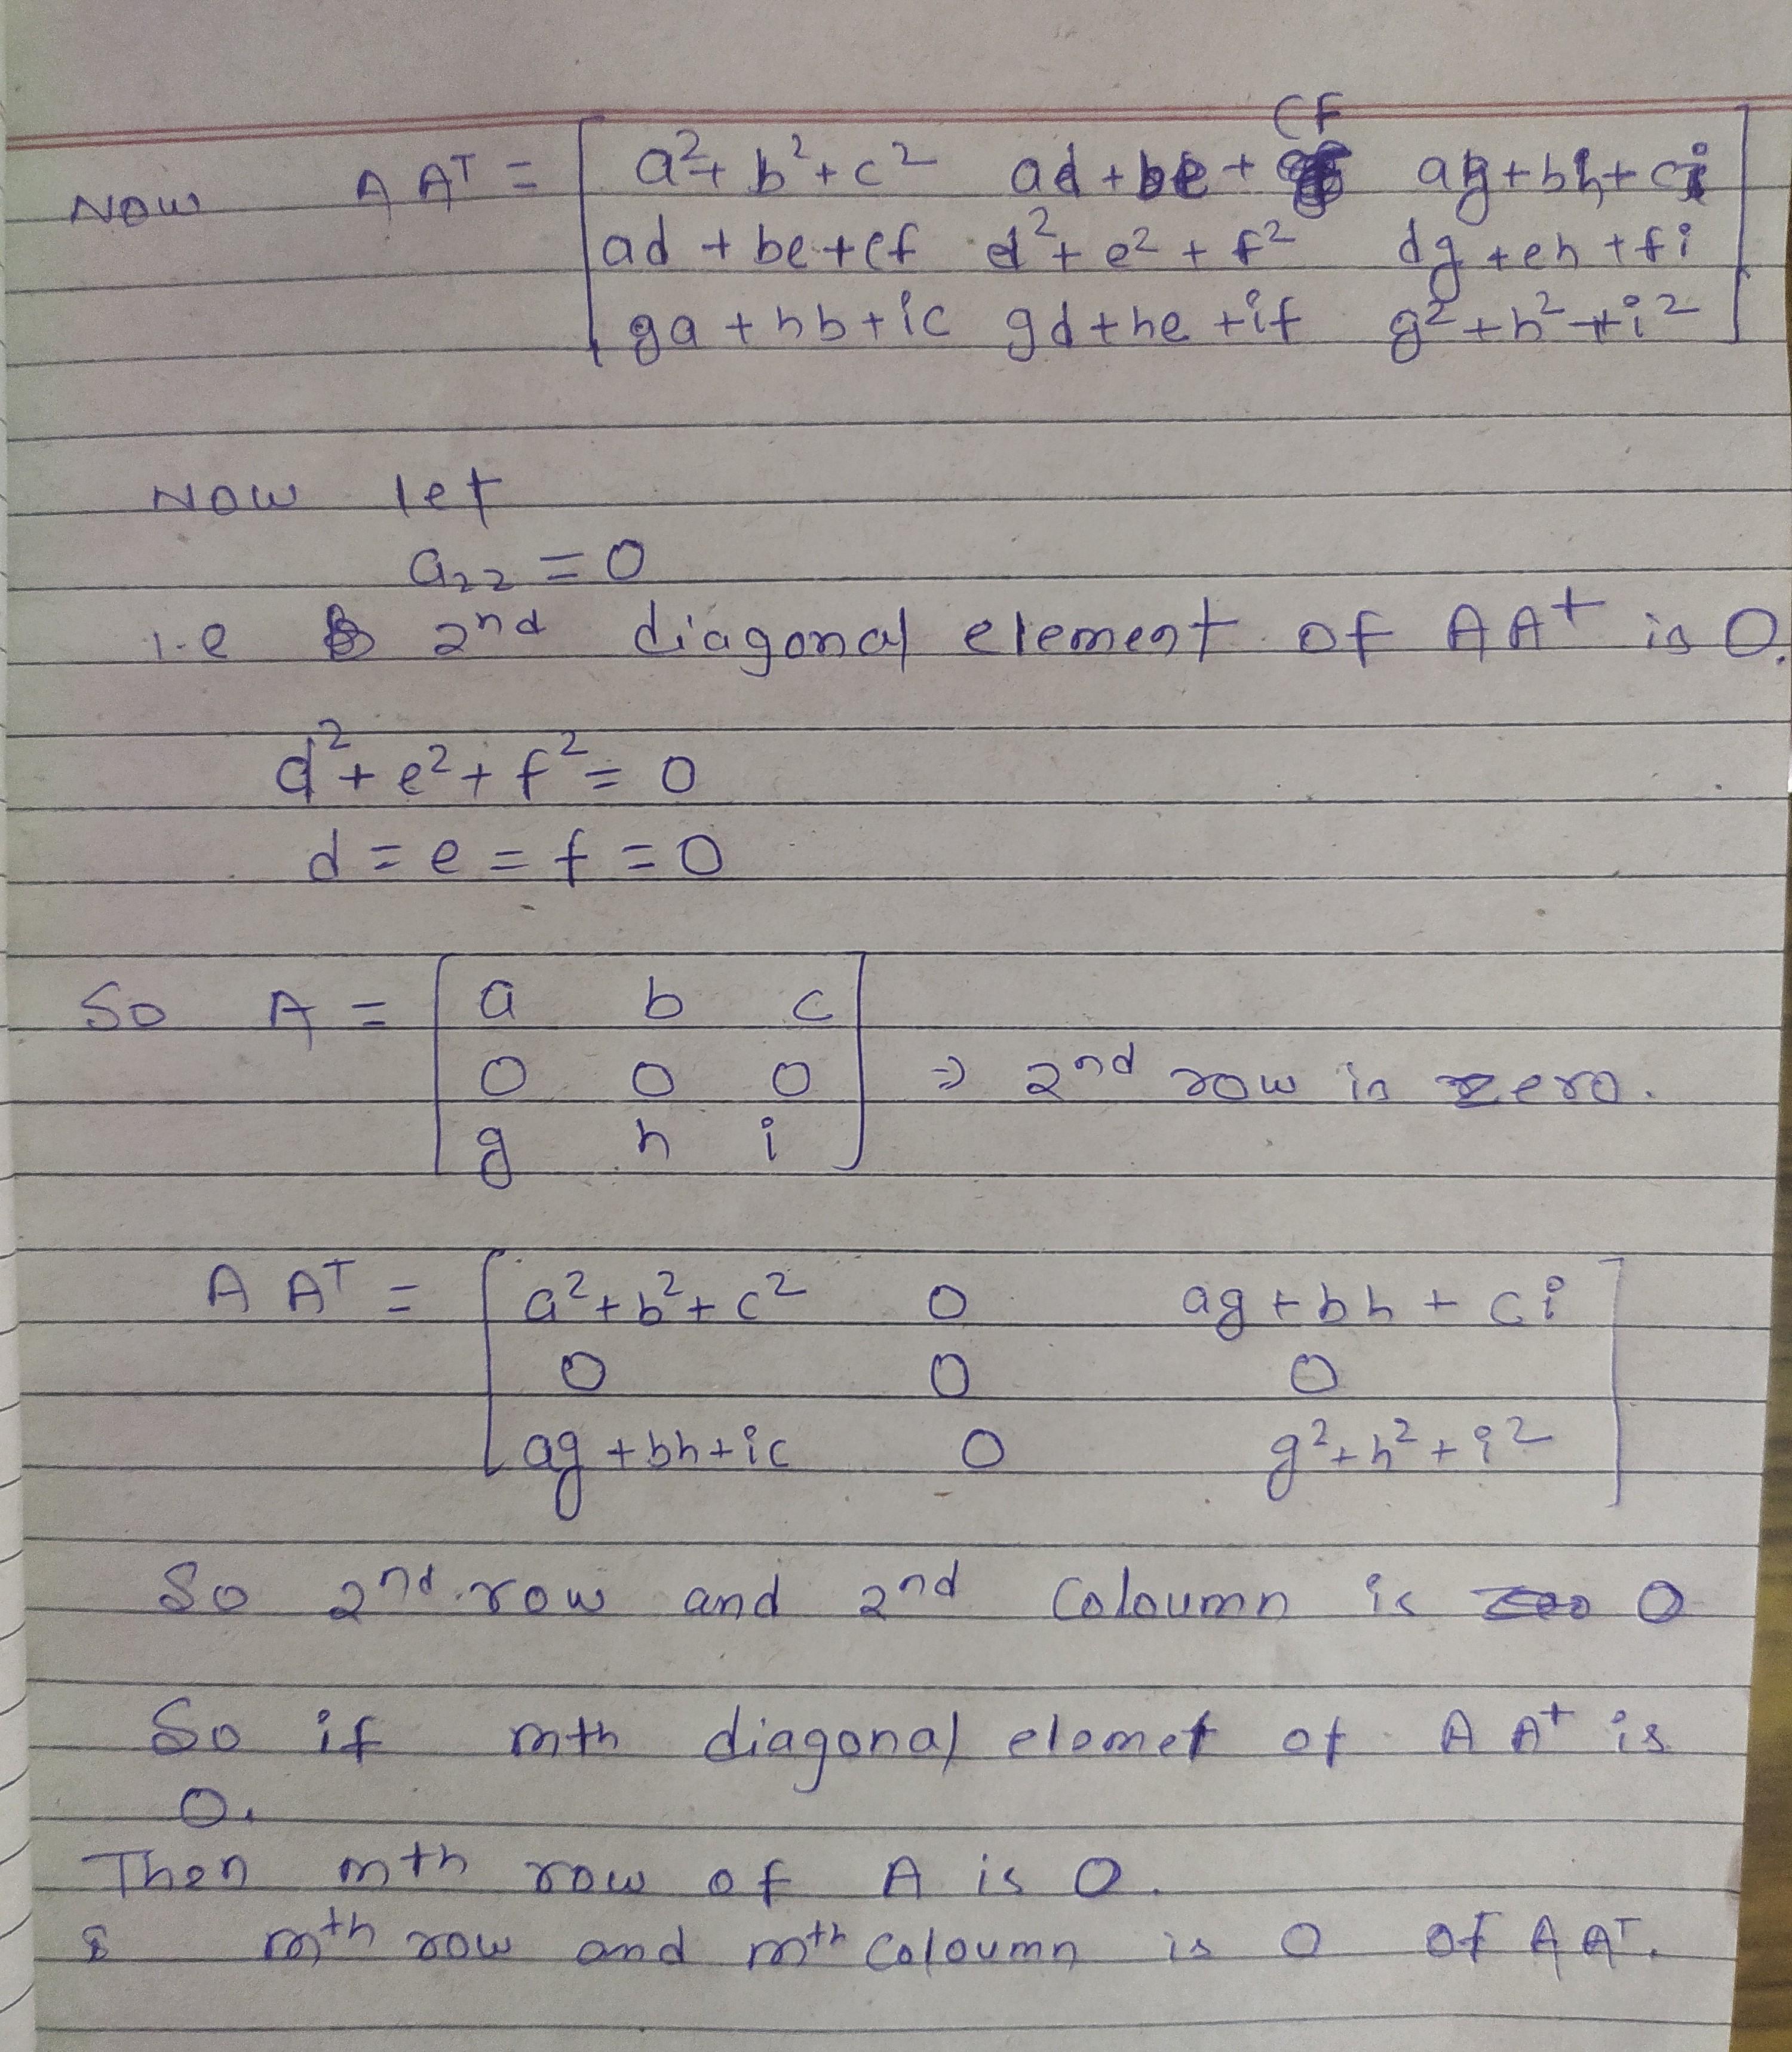 Now AAᵀ = [ a²+b²+c² ad+be+cf ag+bh+ci
ad+be+cf d²+e²+f² dg+eh+fi
ga+hb+ic gd+he+if g²+h²+i² ]
Now let
a₂₂ = 0
i.e 2nd diagonal element of AAᵗ is 0.
d²+e²+f² = 0
d = e = f = 0
So A = [ a b c
0 0 0 ⇒ 2nd row is zero.
g h i ]
AAᵀ = [ a²+b²+c² 0 ag+bh+ci
0 0 0
ag+bh+ic 0 g²+h²+i² ]
So 2nd row and 2nd Coloumn is 0
So if mth diagonal elemet of AAᵗ is
0.
Then mth row of A is 0.
& mth row and mth Coloumn is 0 of AAᵀ.